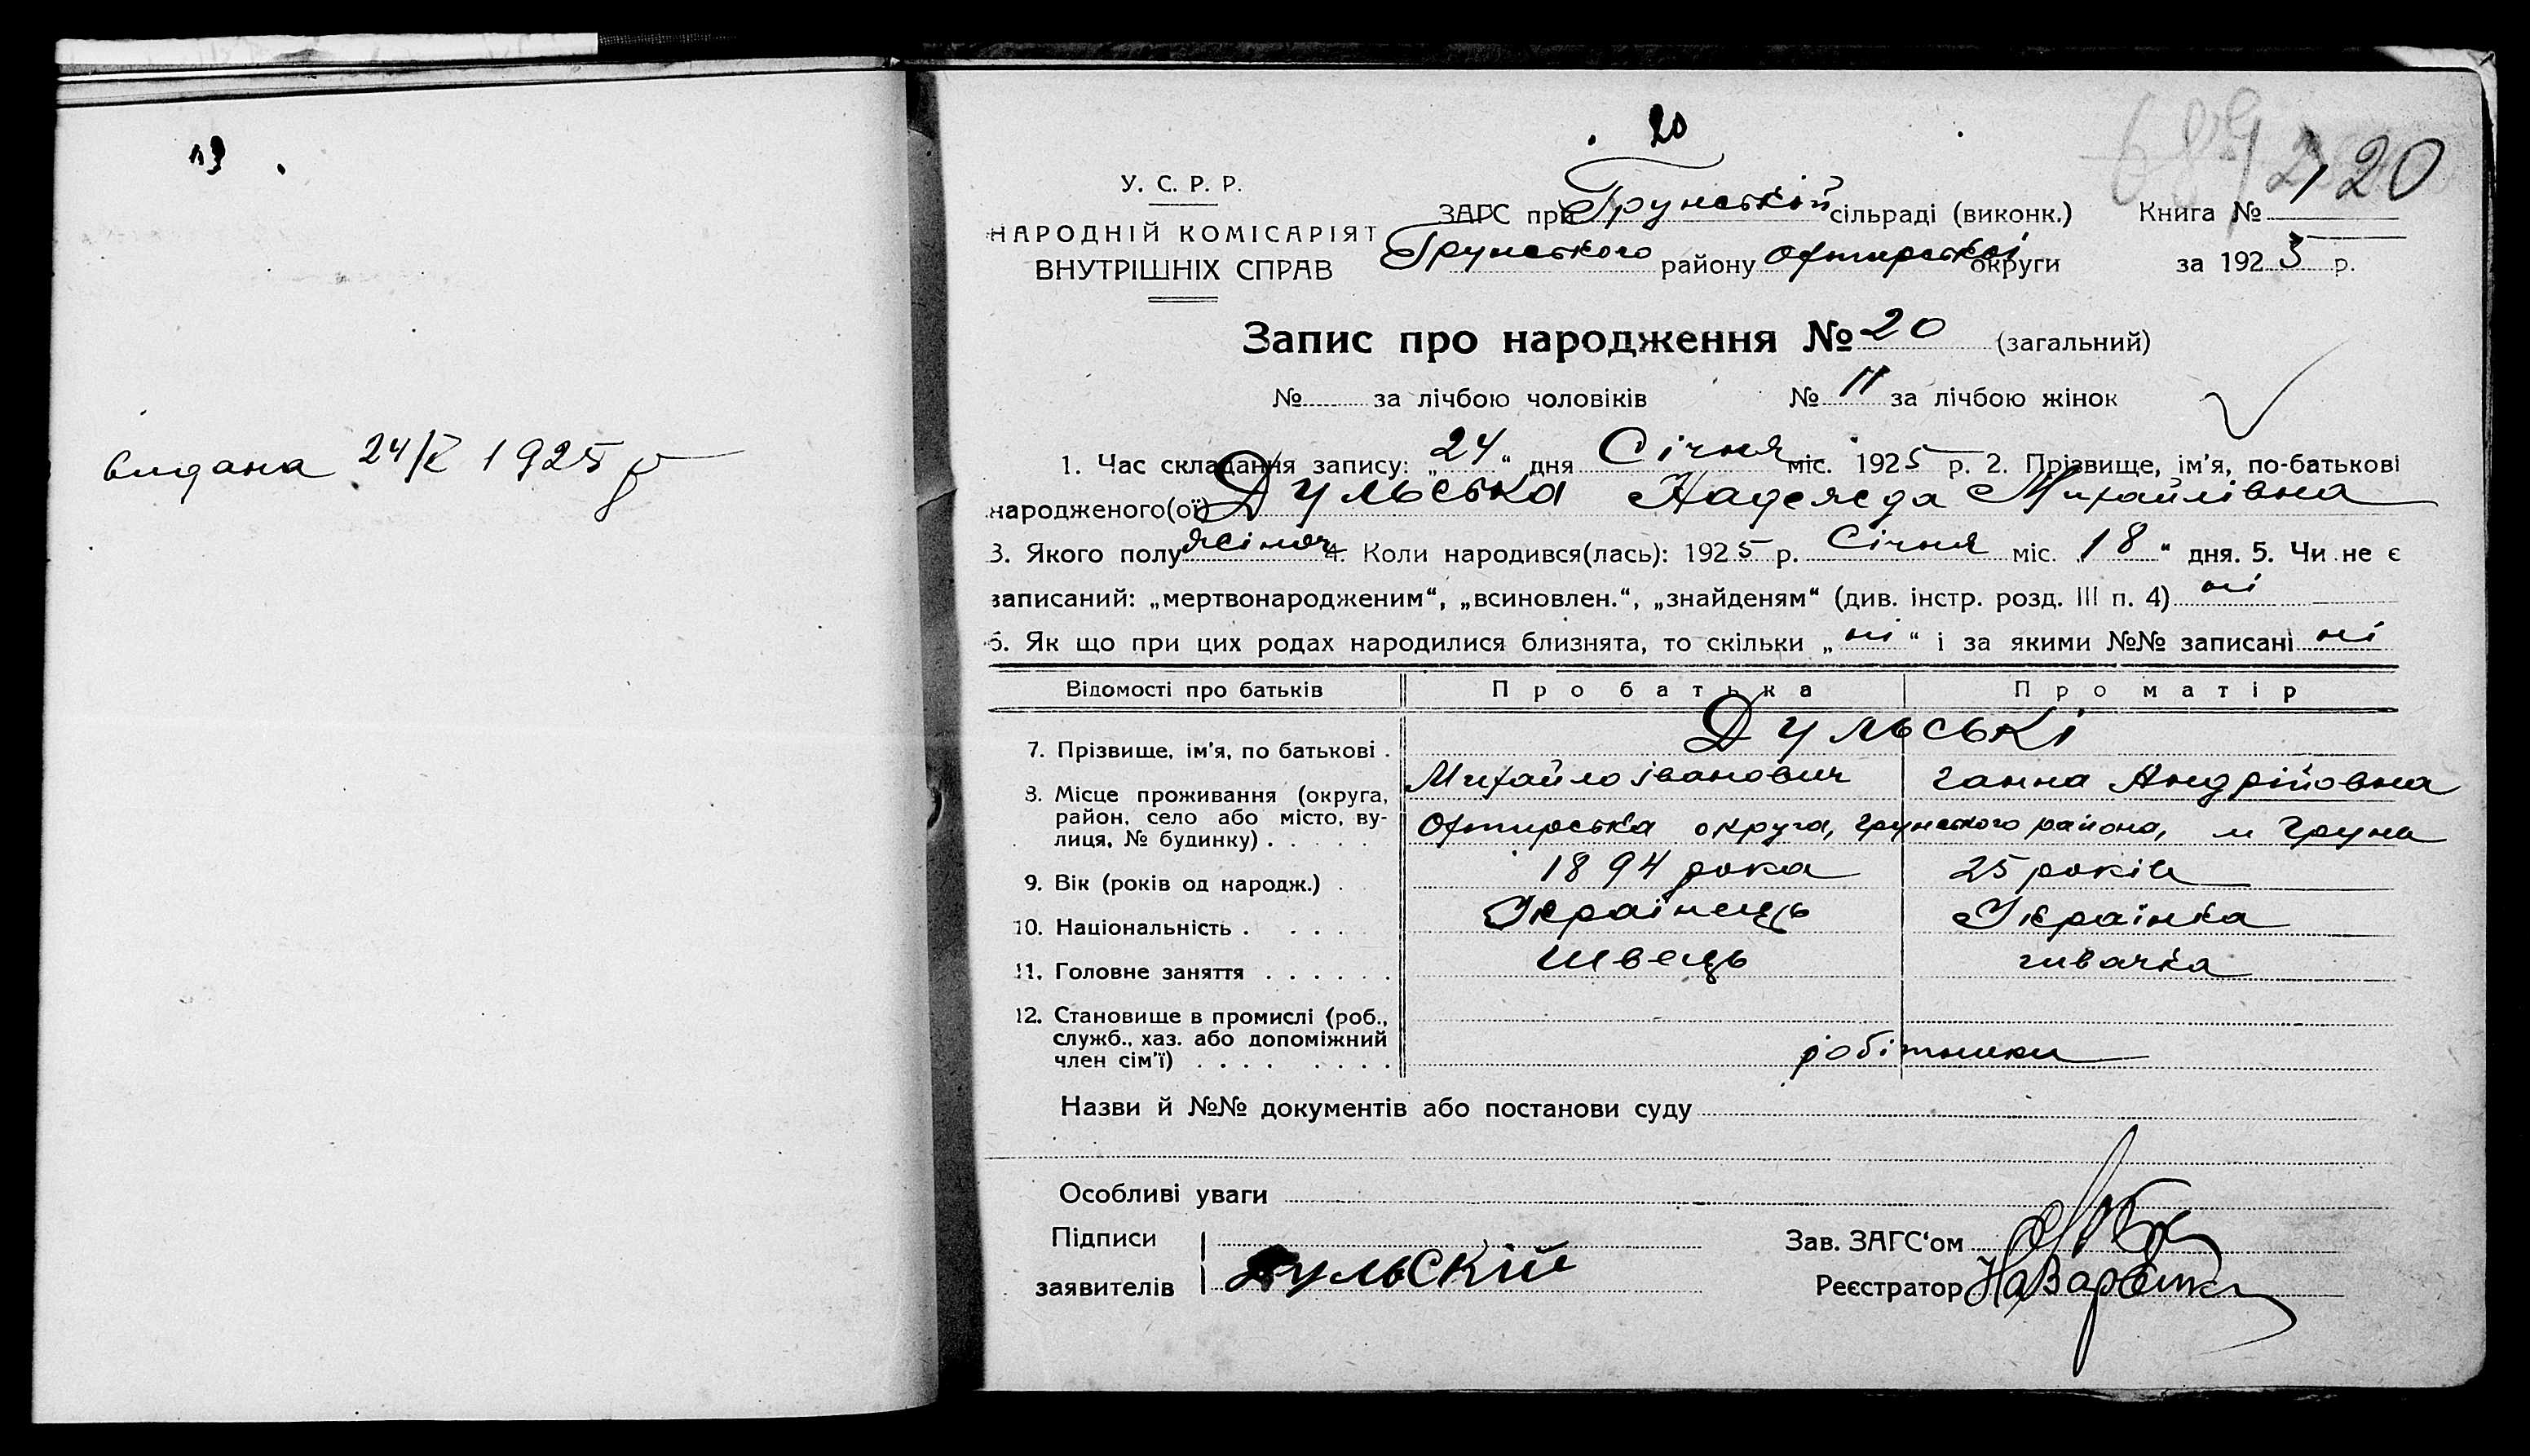 13
видана 24/І 1925 р
20
20
У. С. Р. Р.
НАРОДНІЙ КОМІСАРІЯТ
ВНУТРІШНІХ СПРАВ
ЗАГС при Грунській сільраді (виконк.) Книга №
Грунського району Охтирської округи за 1925 р.
Запис про народження № 20 (загальний)
№ за лічбою чоловіків № 11 за лічбою жінок
1. Час складання запису: „24“ дня Січня міс. 1925 р. 2. Прізвище, ім’я, по-батькові
народженого(ої) Дульська Надежда Михайлівна
3. Якого полу жіноч 4. Коли народився(лась): 1925 р. Січня міс. „18“ дня. 5. Чи не є
записаний: „мертвонародженим“, „всиновлен.“, „знайденям“ (див. інстр. розд. III п. 4) ні
6. Як що при цих родах народилися близнята, то скільки „ні“ і за якими №№ записані ні
Відомості про батьків Про батька Про матір
7. Прізвище, ім’я, по батькові . Дульські
Михайло Іванович Ганна Андрійовна
8. Місце проживання (округа,
район, село або місто, ву-
лиця, № будинку) . . . . . Охтирська округа, Грунського района, м Груна
9. Вік (років од народж.) . 1894 рока 25 років
10. Національність . . . . Українець Українка
11. Головне заняття . . . . . . Швець швачка
12. Становище в промислі (роб.,
служб., хаз. або допоміжний
член сім’ї) . . . . . . . . робітники
Назви й №№ документів або постанови суду
Особливі уваги
Підписи
заявителів Дульскій
Зав. ЗАГС‘ом
Реєстратор